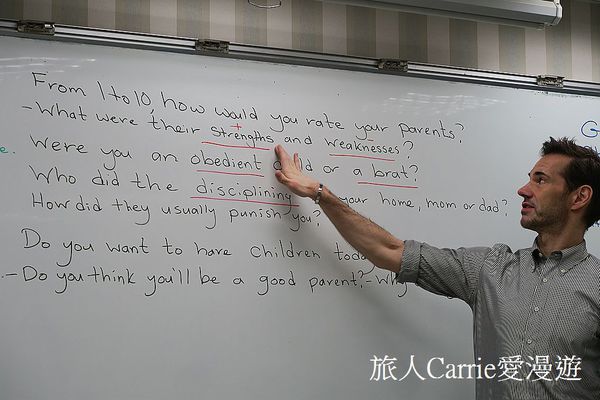 From 1 to 10, how would you rate your parents?
- What were their strengths and weaknesses?
+
Were you an obedient child or a brat?
Who did the disciplining your home, mom or dad?
How did they usually punish you?
Do you want to have children today
- Do you think you'll be a good parent? - Why
G
e.
旅人Carrie愛漫遊